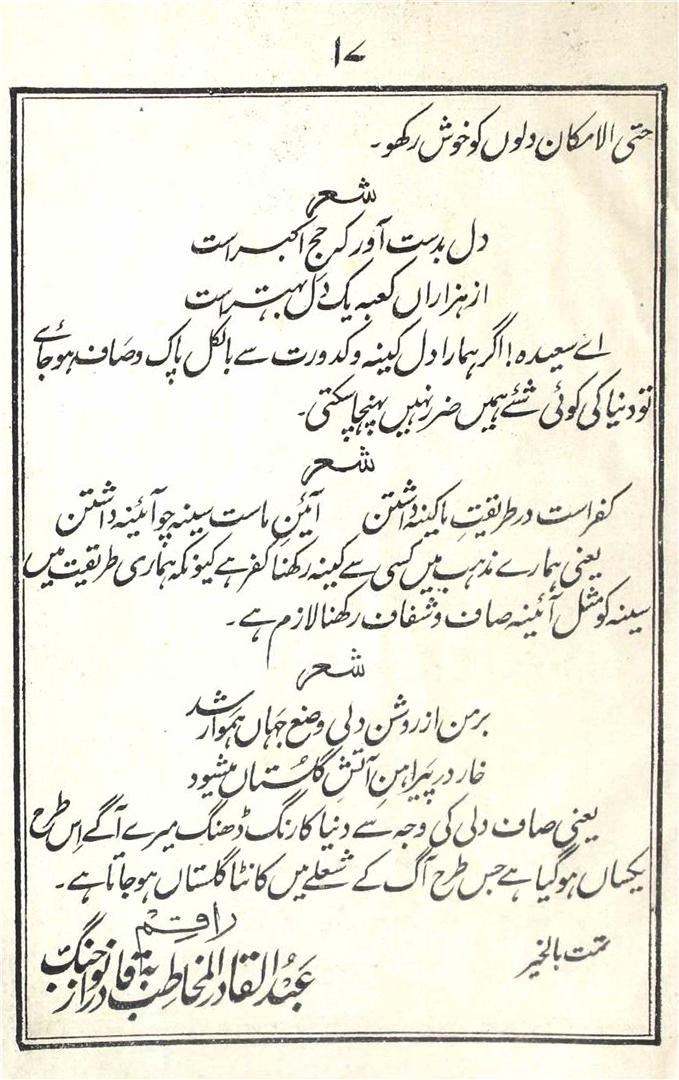 ۱۷
حتی الامکان دلوں کو خوش رکھو۔
شعر
دل بدست آور کہ حج اکبر است
از ہزاراں کعبہ یک دل بہتر است
اے سعیدہ! اگر ہمارا دل کینہ و کدورت سے بالکل پاک و صاف ہو جائے
تو دنیا کی کوئی شئے ہمیں ضرر نہیں پہنچا سکتی۔
شعر
کفر است در طریقتِ ما کینہ داشتن آئین ماست سینہ چو آئینہ داشتن
یعنی ہمارے مذہب میں کسی سے کینہ رکھنا کفر ہے کیونکہ ہماری طریقت میں
سینہ کو مثل آئینہ صاف و شفاف رکھنا لازم ہے۔
شعر
برمن از روشن دلی وضع جہاں ہموار شد
خار در پیراہنِ آتش گلستاں میشود
یعنی صاف دلی کی وجہ سے دنیا کا رنگ ڈھنگ میرے آگے اِس طرح
یکساں ہو گیا ہے جس طرح آگ کے شعلے میں کانٹا گلستاں ہو جاتا ہے۔
راقم
تمت بالخیر
عبدالقادر المخاطب بہ قادر نواز جنگ